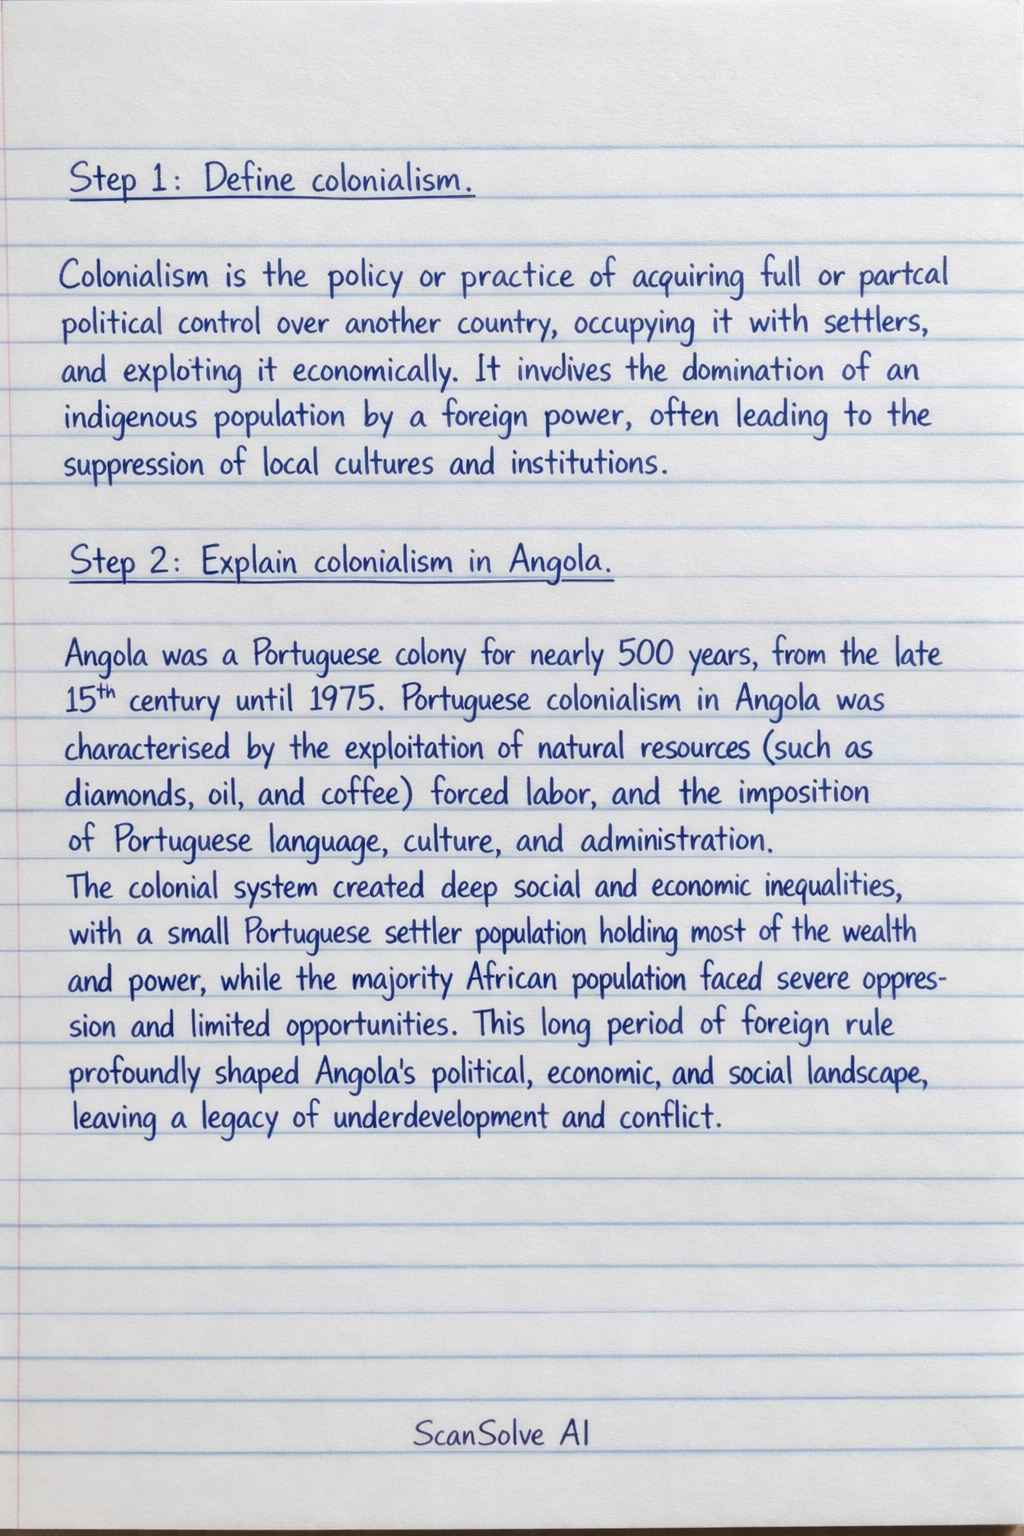 Step 1: Define colonialism.
Colonialism is the policy or practice of acquiring full or partcal
political control over another country, occupying it with settlers,
and exploting it economically. It invdives the domination of an
indigenous population by a foreign power, often leading to the
suppression of local cultures and institutions.
Step 2: Explain colonialism in Angola.
Angola was a Portuguese colony for nearly 500 years, from the late
15th century until 1975. Portuguese colonialism in Angola was
characterised by the exploitation of natural resources (such as
diamonds, oil, and coffee) forced labor, and the imposition
of Portuguese language, culture, and administration.
The colonial system created deep social and economic inequalities,
with a small Portuguese settler population holding most of the wealth
and power, while the majority African population faced severe oppres-
sion and limited opportunities. This long period of foreign rule
profoundly shaped Angola's political, economic, and social landscape,
leaving a legacy of underdevelopment and conflict.
ScanSolve AI